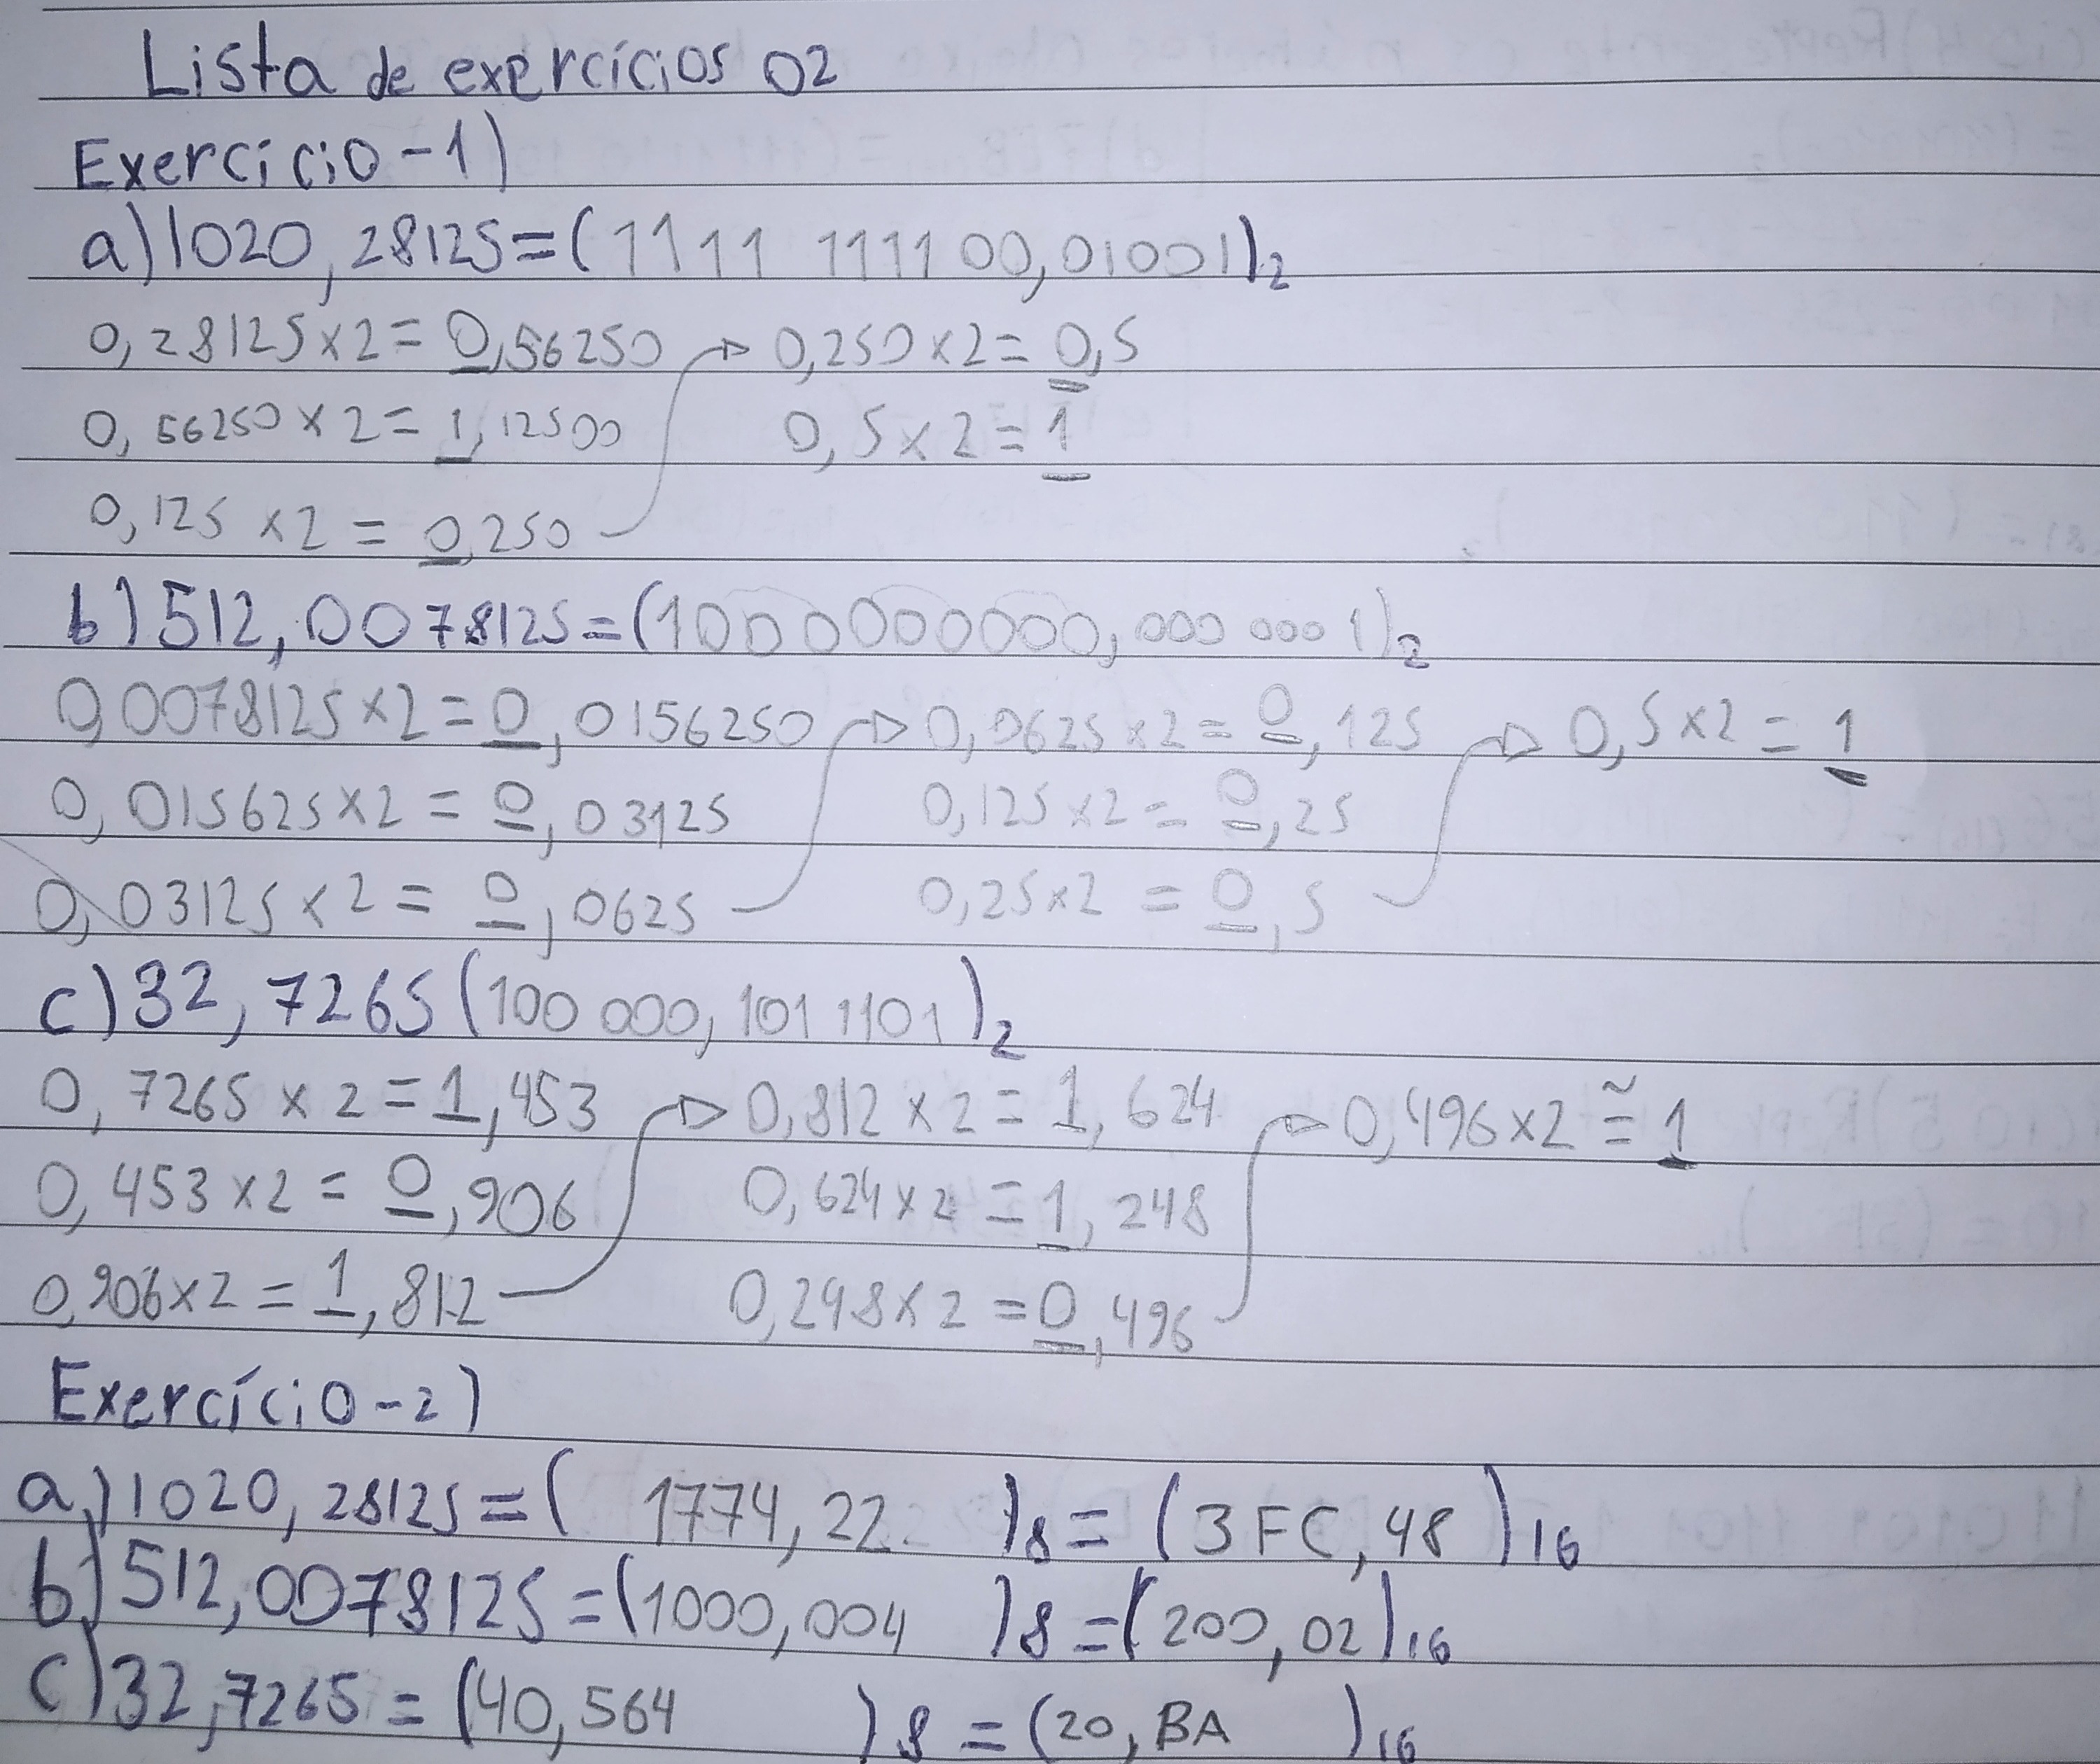 Lista de exercícios 02
Exercício-1)
a) 1020,28125=(1111 111100,01001)2
0,28125x2=0,56250 → 0,250x2=0,5
0,56250x2=1,12500 0,5x2=1
0,125 x2 = 0,250
b) 512,0078125=(1000000000,000 000 1)2
0,0078125x2=0,0156250 → 0,0625x2=0,125 → 0,5x2=1
0,015625x2=0,03125 0,125x2=0,25
0,03125x2=0,0625 0,25x2=0,5
c) 32,7265 (100 000,101 1101)2
0,7265x2=1,453 → 0,812x2=1,624 → 0,496x2≅1
0,453x2=0,906 0,624x2=1,248
0,906x2=1,812 0,248x2=0,496
Exercício-2)
a) 1020,28125=(1774,22)8=(3FC,48)16
b) 512,0078125=(1000,004)8=(200,02)16
c) 32,7265=(40,564)8=(20,BA)16